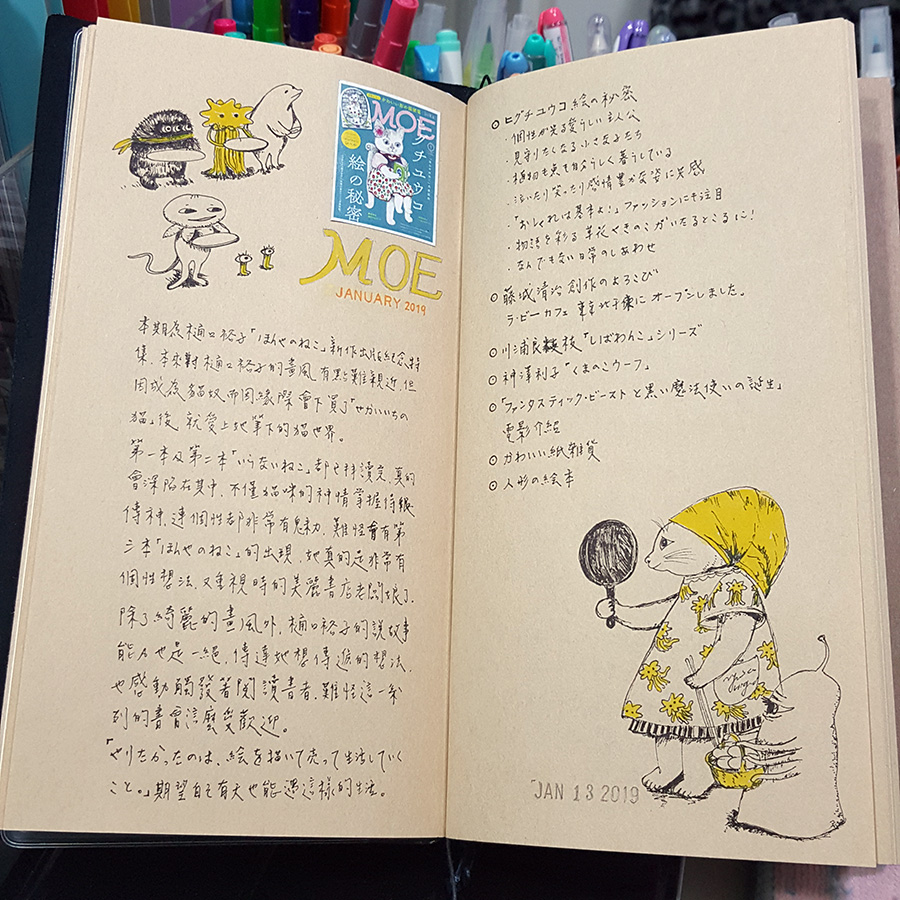 MOE
ヒグチユウコ
絵の秘密
MOE
JANUARY 2019
本期為樋口裕子「ほんやのねこ」新作出版紀念特
集,本來對樋口裕子的畫風有點難親近,但
因成為貓奴而因緣際會下買了「せかいいちの
ねこ」後,就愛上她筆下的貓世界。
第一本及第二本「いらないねこ」都已拜讀完,真的
會深陷在其中,不僅貓咪的神情掌握得很
傳神,連個性都非常有魅力,難怪會有第
三本「ほんやのねこ」的出現,她真的是非常有
個性想法,又重視時的美麗書店老闆娘了。
除了綺麗的畫風外,樋口裕子的說故事
能力也是一絕,傳達她想傳遞的想法,
也感動觸發著閱讀書者,難怪這一系
列的書會這麼受歡迎。
「やりたかったのは、絵を描いて売って生活していく
こと。」期望自己有天也能過這樣的生活。
ヒグチユウコ 絵の秘密
・個性が光る愛らしい主人公
・見守りたくなる小さな子たち
・植物も魚も自分らしく暮らしている
・泣いたり笑ったり感情豊かな姿に共感
・「おしゃれは基本よ!」ファッションにも注目
・物語を彩る草花やきのこがいたるところに!
・なんでもない日常のしあわせ
藤城清治 創作のよろこび
ラ・ビーカフェ 東京北千束にオープンしました。
川浦良枝「しばわんこ」シリーズ
神澤利子「くまのこウーフ」
「ファンタスティック・ビーストと黒い魔法使いの誕生」
電影介紹
かわいい紙雑貨
人形の絵本
JAN 13 2019